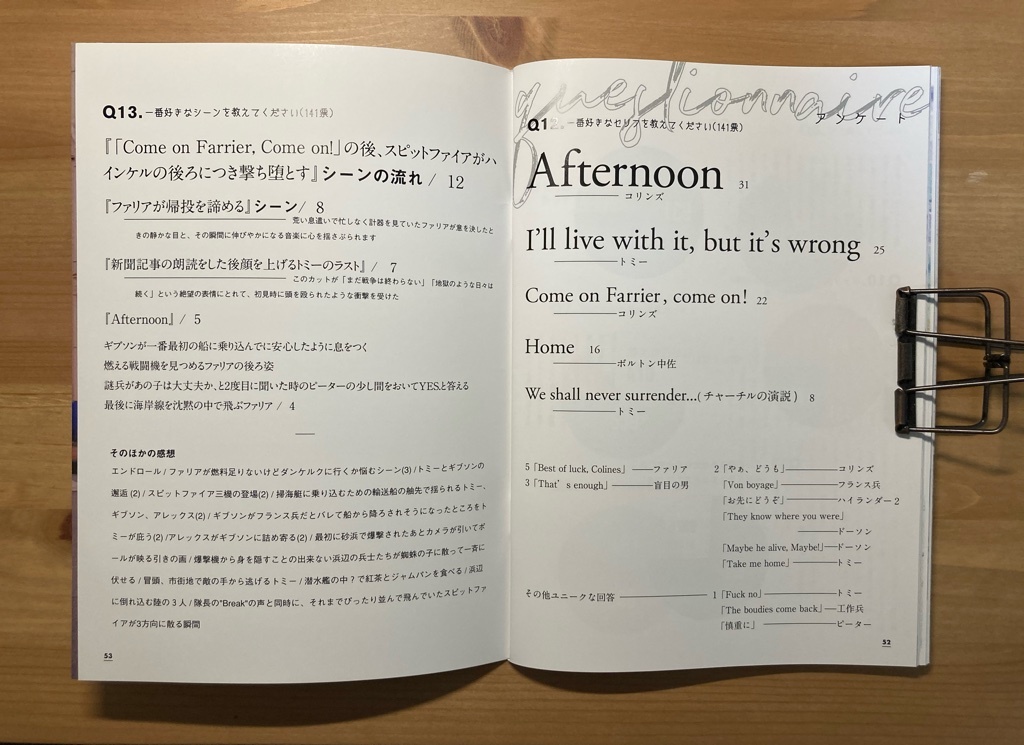 questionnaire
アンケート
Q12.一番好きなセリフを教えてください(141票)
Afternoon 31
コリンズ
I'll live with it, but it's wrong 25
トミー
Come on Farrier, come on! 22
コリンズ
Home 16
ボルトン中佐
We shall never surrender...(チャーチルの演説) 8
トミー
5「Best of luck, Colines」ファリア
3「That's enough」盲目の男
2「やぁ、どうも」コリンズ
「Von boyage」フランス兵
「お先にどうぞ」ハイランダー2
「They know where you were」
ドーソン
「Maybe he alive, Maybe!」ドーソン
「Take me home」トミー
その他ユニークな回答
1「Fuck no」トミー
「The boudies come back」工作兵
「慎重に」ピーター
52
Q13.一番好きなシーンを教えてください(141票)
『「Come on Farrier, Come on!」の後、スピットファイアがハ
インケルの後ろにつき撃ち堕とす』シーンの流れ / 12
『ファリアが帰投を諦める』シーン/ 8
荒い息遣いで忙しなく計器を見ていたファリアが意を決したと
きの静かな目と、その瞬間に伸びやかになる音楽に心を揺さぶられます
『新聞記事の朗読をした後顔を上げるトミーのラスト』 / 7
このカットが「まだ戦争は終わらない」「地獄のような日々は
続く」という絶望の表情にとれて、初見時に頭を殴られたような衝撃を受けた
『Afternoon』 / 5
ギブソンが一番最初の船に乗り込んでに安心したように息をつく
燃える戦闘機を見つめるファリアの後ろ姿
謎兵があの子は大丈夫か、と2度目に聞いた時のピーターの少し間をおいてYES、と答える
最後に海岸線を沈黙の中で飛ぶファリア / 4
そのほかの感想
エンドロール/ファリアが燃料足りないけどダンケルクに行くか悩むシーン(3)/トミーとギブソンの
邂逅(2)/スピットファイア三機の登場(2)/掃海艇に乗り込むための輸送船の舳先で揺られるトミー、
ギブソン、アレックス(2)/ギブソンがフランス兵だとバレて船から降ろされそうになったところをト
ミーが庇う(2)/アレックスがギブソンに詰め寄る(2)/最初に砂浜で爆撃されたあとカメラが引いてポ
ールが映る引きの画/爆撃機から身を隠すことの出来ない浜辺の兵士たちが蜘蛛の子に散って一斉に
伏せる/冒頭、市街地で敵の手から逃げるトミー/潜水艦の中?で紅茶とジャムパンを食べる/浜辺
に倒れ込む陸の3人/隊長の"Break"の声と同時に、それまでぴったり並んで飛んでいたスピットファ
イアが3方向に散る瞬間
53